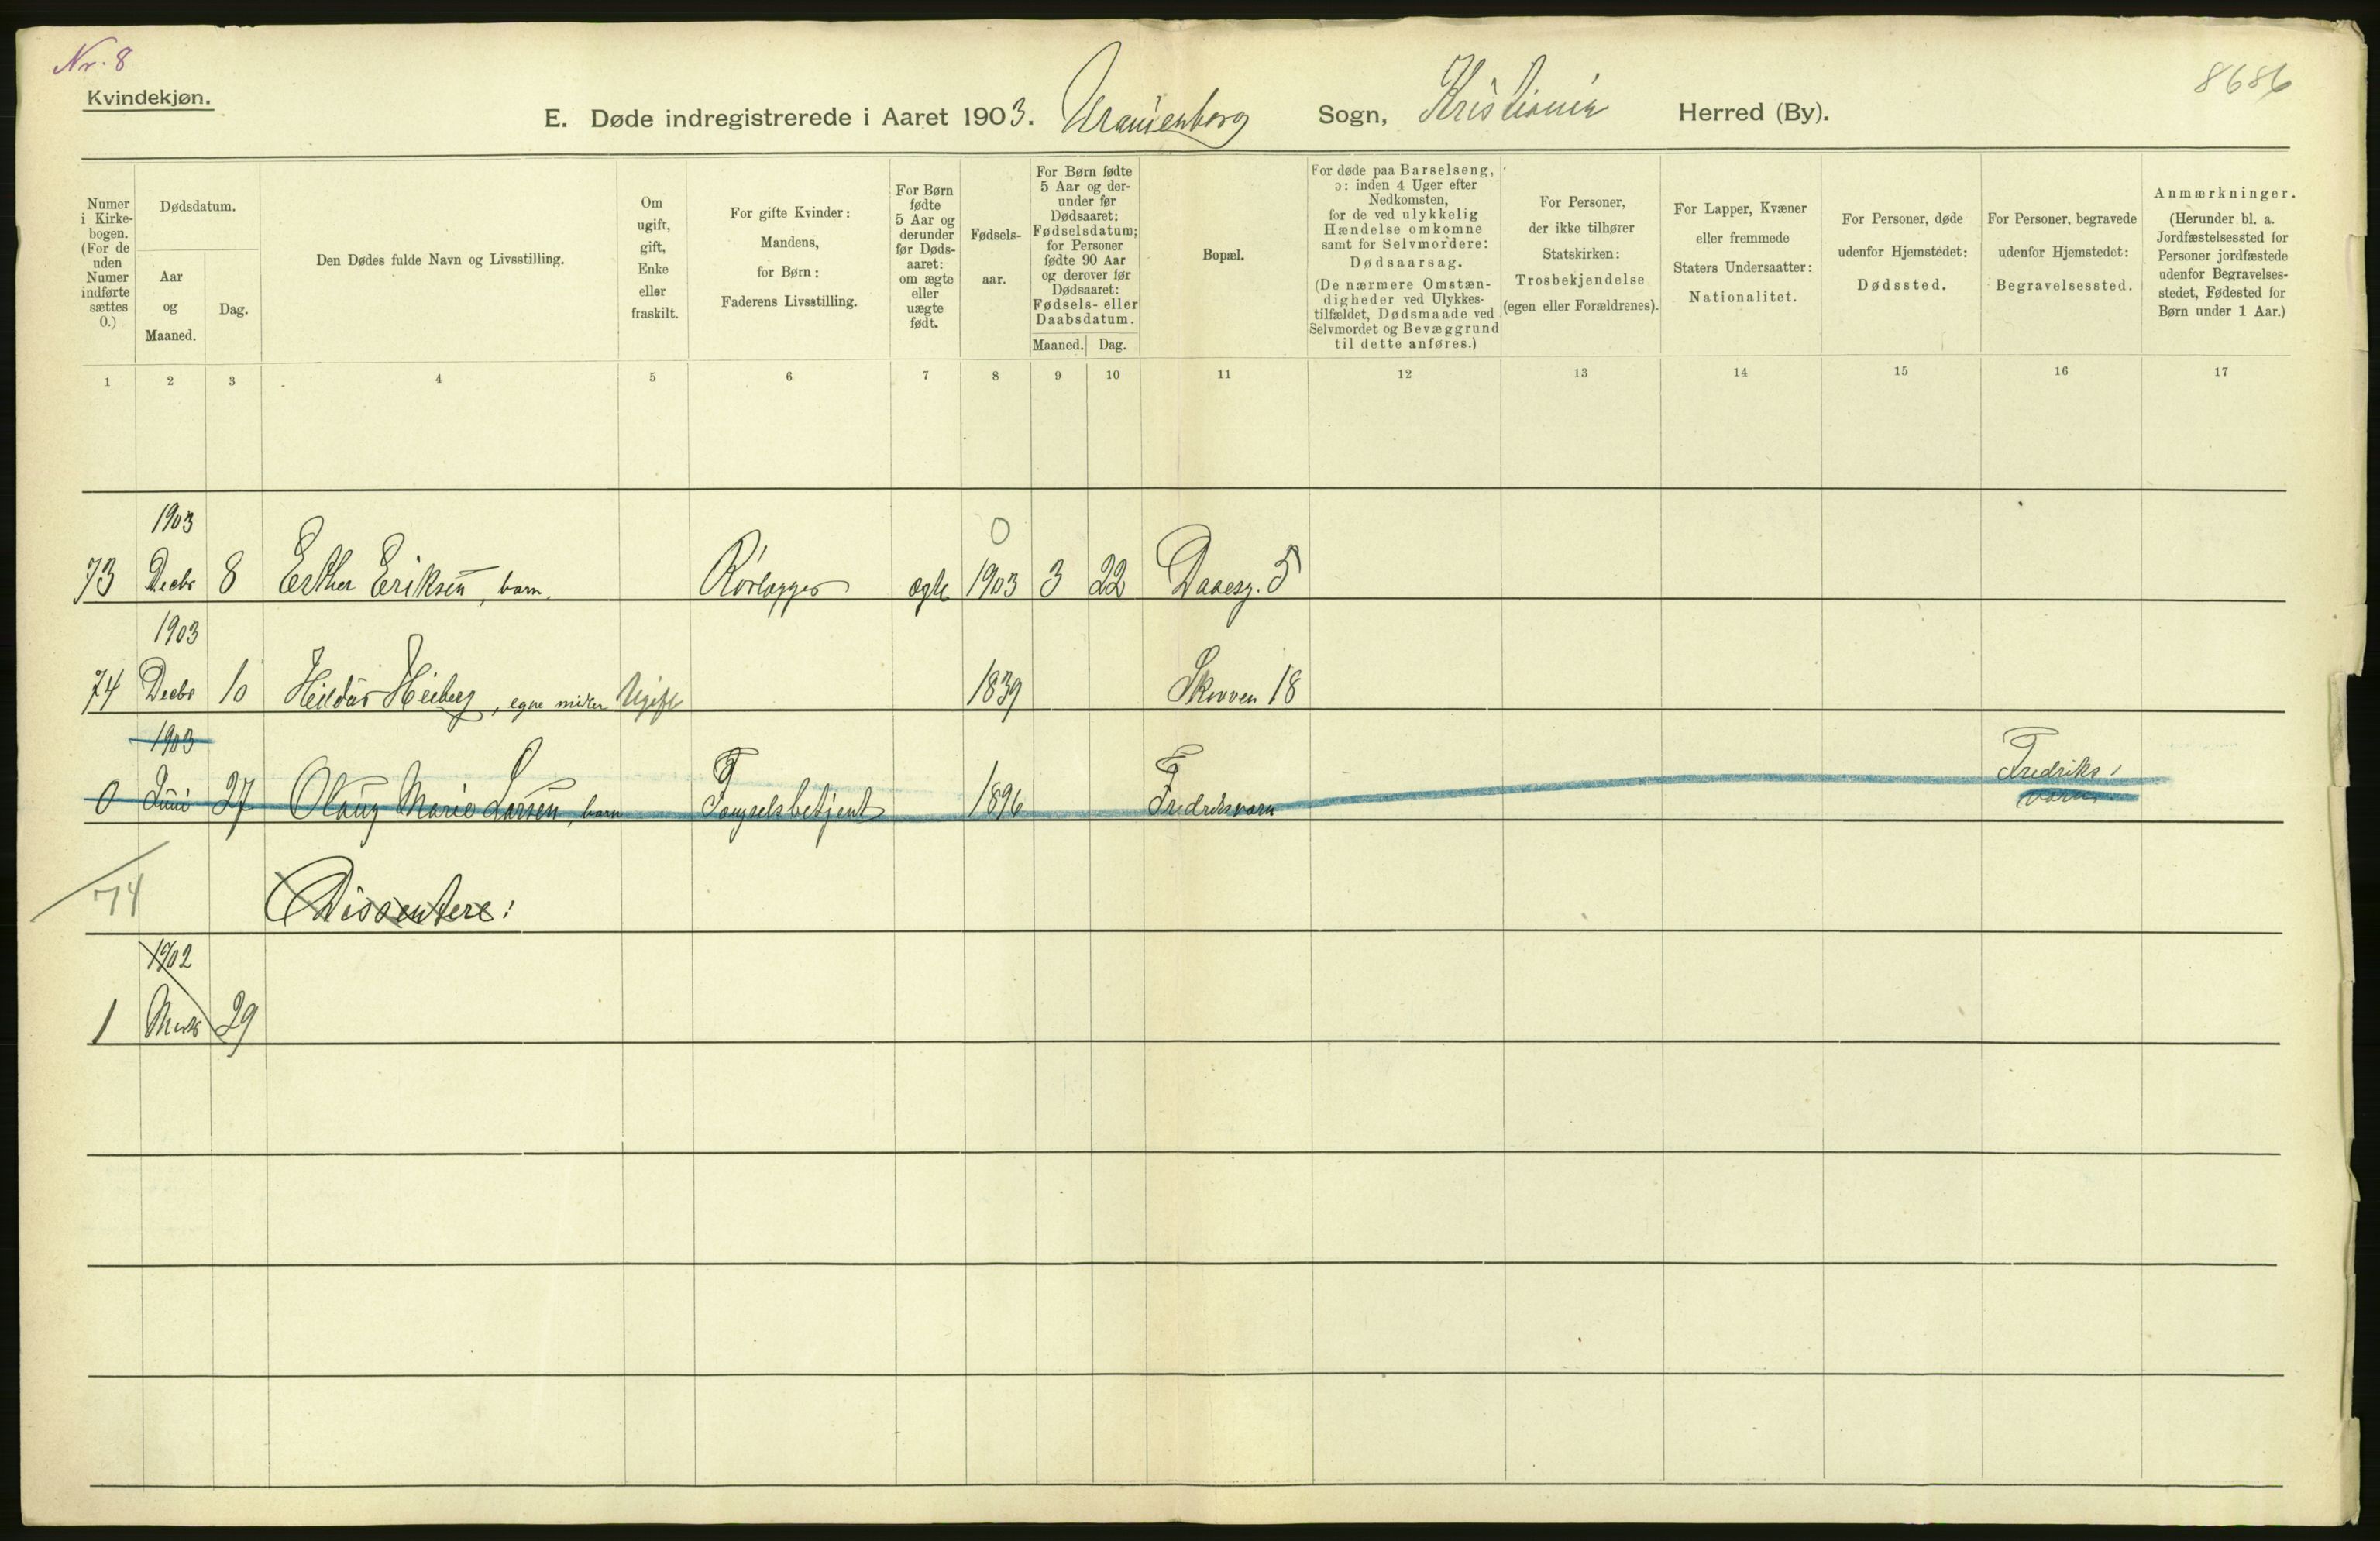 Nr. 8
8686
Kvindekjøn.
E. Døde indregistrerede i Aaret 1903. Uranienborg Sogn, Kristiania Herred (By).
Numer i Kirke-bogen. (For de uden Numer indførte sættes 0.)
Dødsdatum.
Aar og Maaned.
Dag.
Den Dødes fulde Navn og Livsstilling.
Om ugift, gift, Enke eller fraskilt.
For gifte Kvinder: Mandens, for Børn: Faderens Livsstilling.
For Børn fødte 5 Aar og derunder før Døds-aaret: om ægte eller uægte født.
Fødsels-aar.
For Børn fødte 5 Aar og der-under før Dødsaaret: Fødselsdatum; for Personer fødte 90 Aar og derover før Dødsaaret: Fødsels- eller Daabsdatum.
Maaned. Dag.
Bopæl.
For døde paa Barselseng, ɔ: inden 4 Uger efter Nedkomsten, for de ved ulykkelig Hændelse omkomne samt for Selvmordere: Dødsaarsag. (De nærmere Omstæn-digheder ved Ulykkes-tilfældet, Dødsmaade ved Selvmordet og Bevæggrund til dette anføres.)
For Personer, der ikke tilhører Statskirken: Trosbekjendelse (egen eller Forældrenes).
For Lapper, Kvæner eller fremmede Staters Undersaatter: Nationalitet.
For Personer, døde udenfor Hjemstedet: Dødssted.
For Personer, begravede udenfor Hjemstedet: Begravelsessted.
Anmærkninger. (Herunder bl. a. Jordfæstelsessted for Personer jordfæstede udenfor Begravelses-stedet, Fødested for Børn under 1 Aar.)
1 2 3 4 5 6 7 8 9 10 11 12 13 14 15 16 17
1903 0
73 Decbr 8 Esther Eriksen, barn. Rørlægger ægte 1903 3 22 Daaesg. 5
1903
74 Decbr 10 Heiberg, egne midler Ugift 1839 Skovven 18
1903
0 Juni 27 Olaug Marie Larsen, barn Fængselsbetjent 1896 Fredriksværn Fredriks-værn
74 Dissentere:
1902
1 29